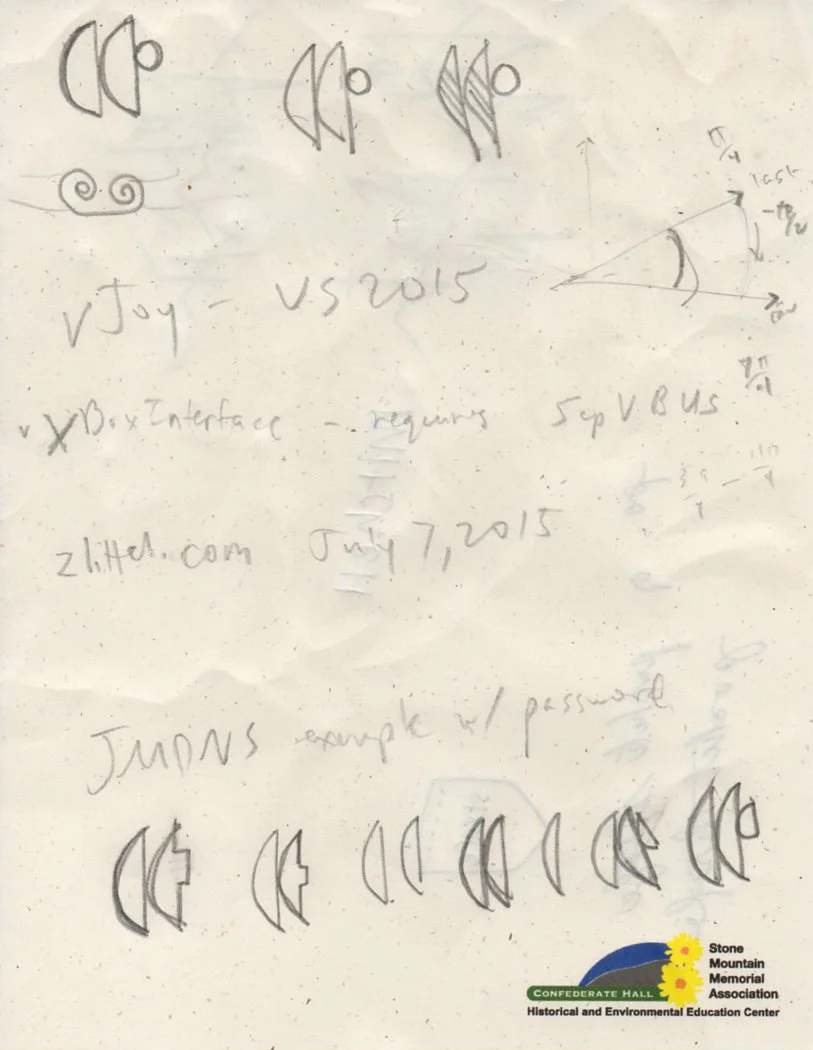 π/4
last
-π/2
vJoy - VS2015
7π/4
XBoxInterface - requires ScpVBUS
zlittel.com July 7, 2015
JMDNS example w/ password
CONFEDERATE HALL
Stone
Mountain
Memorial
Association
Historical and Environmental Education Center